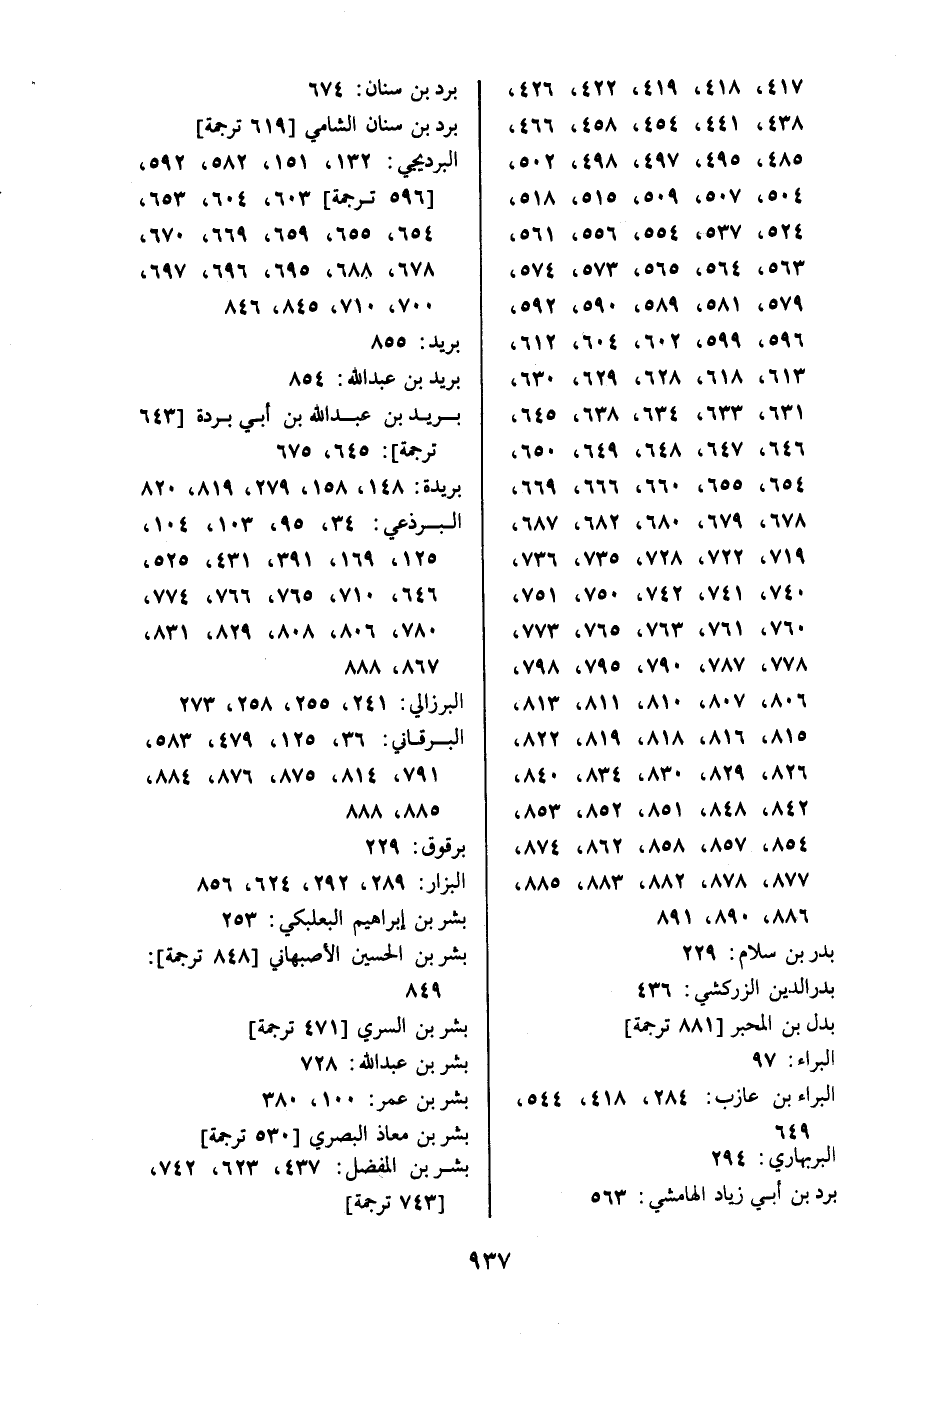 ٤١٧، ٤١٨، ٤١٩، ٤٢٢، ٤٢٦،
٤٣٨، ٤٤١، ٤٥٤، ٤٥٨، ٤٦٦،
٤٨٥، ٤٩٥، ٤٩٧، ٤٩٨، ٥٠٢،
٥٠٤، ٥٠٧، ٥٠٩، ٥١٥، ٥١٨،
٥٢٤، ٥٣٧، ٥٥٤، ٥٥٦، ٥٦١،
٥٦٣، ٥٦٤، ٥٦٥، ٥٧٣، ٥٧٤،
٥٧٩، ٥٨١، ٥٨٩، ٥٩٠، ٥٩٢،
٥٩٦، ٥٩٩، ٦٠٢، ٦٠٤، ٦١٢،
٦١٣، ٦١٨، ٦٢٨، ٦٢٩، ٦٣٠،
٦٣١، ٦٣٣، ٦٣٤، ٦٣٨، ٦٤٥،
٦٤٦، ٦٤٧، ٦٤٨، ٦٤٩، ٦٥٠،
٦٥٤، ٦٥٥، ٦٦٠، ٦٦٦، ٦٦٩،
٦٧٨، ٦٧٩، ٦٨٠، ٦٨٢، ٦٨٧،
٧١٩، ٧٢٢، ٧٢٨، ٧٣٥، ٧٣٦،
٧٤٠، ٧٤١، ٧٤٢، ٧٥٠، ٧٥١،
٧٦٠، ٧٦١، ٧٦٣، ٧٦٥، ٧٧٣،
٧٧٨، ٧٨٧، ٧٩٠، ٧٩٥، ٧٩٨،
٨٠٦، ٨٠٧، ٨١٠، ٨١١، ٨١٣،
٨١٥، ٨١٦، ٨١٨، ٨١٩، ٨٢٢،
٨٢٦، ٨٢٩، ٨٣٠، ٨٣٤، ٨٤٠،
٨٤٢، ٨٤٨، ٨٥١، ٨٥٢، ٨٥٣،
٨٥٤، ٨٥٧، ٨٥٨، ٨٦٢، ٨٧٤،
٨٧٧، ٨٧٨، ٨٨٢، ٨٨٣، ٨٨٥،
٨٨٦، ٨٩٠، ٨٩١
بدر بن سلام: ٢٢٩
بدرالدين الزركشي: ٤٣٦
بدل بن المحبر [٨٨١ ترجمة]
البراء: ٩٧
البراء بن عازب: ٢٨٤، ٤١٨، ٥٤٤،
٦٤٩
البربهاري: ٢٩٤
برد بن أبي زياد الهامشي: ٥٦٣
برد بن سنان: ٦٧٤
برد بن سنان الشامي [٦١٩ ترجمة]
البرديجي: ١٣٢، ١٥١، ٥٨٢، ٥٩٢،
[٥٩٦ ترجمة] ٦٠٣، ٦٠٤، ٦٥٣،
٦٥٤، ٦٥٥، ٦٥٩، ٦٦٩، ٦٧٠،
٦٧٨، ٦٨٨، ٦٩٥، ٦٩٦، ٦٩٧،
٧٠٠، ٧١٠، ٨٤٥، ٨٤٦
بريد: ٨٥٥
بريد بن عبدالله: ٨٥٤
بريد بن عبدالله بن أبي بردة [٦٤٣
ترجمة]: ٦٤٥، ٦٧٥
بريدة: ١٤٨، ١٥٨، ٢٧٩، ٨١٩، ٨٢٠
البرذعي: ٣٤، ٩٥، ١٠٣، ١٠٤،
١٢٥، ١٦٩، ٣٩١، ٤٣١، ٥٢٥،
٦٤٦، ٧١٠، ٧٦٥، ٧٦٦، ٧٧٤،
٧٨٠، ٨٠٦، ٨٠٨، ٨٢٩، ٨٣١،
٨٦٧، ٨٨٨
البرزالي: ٢٤١، ٢٥٥، ٢٥٨، ٢٧٣
البرقاني: ٣٦، ١٢٥، ٤٧٩، ٥٨٣،
٧٩١، ٨١٤، ٨٧٥، ٨٧٦، ٨٨٤،
٨٨٥، ٨٨٨
برقوق: ٢٢٩
البزار: ٢٨٩، ٢٩٢، ٦٢٤، ٨٥٦
بشر بن إبراهيم البعلبكي: ٢٥٣
بشر بن الحسين الأصبهاني [٨٤٨ ترجمة]:
٨٤٩
بشر بن السري [٤٧١ ترجمة]
بشر بن عبدالله: ٧٢٨
بشر بن عمر: ١٠٠، ٣٨٠
بشر بن معاذ البصري [٥٣٠ ترجمة]
بشر بن المفضل: ٤٣٧، ٦٢٣، ٧٤٢،
[٧٤٣ ترجمة]
٩٣٧